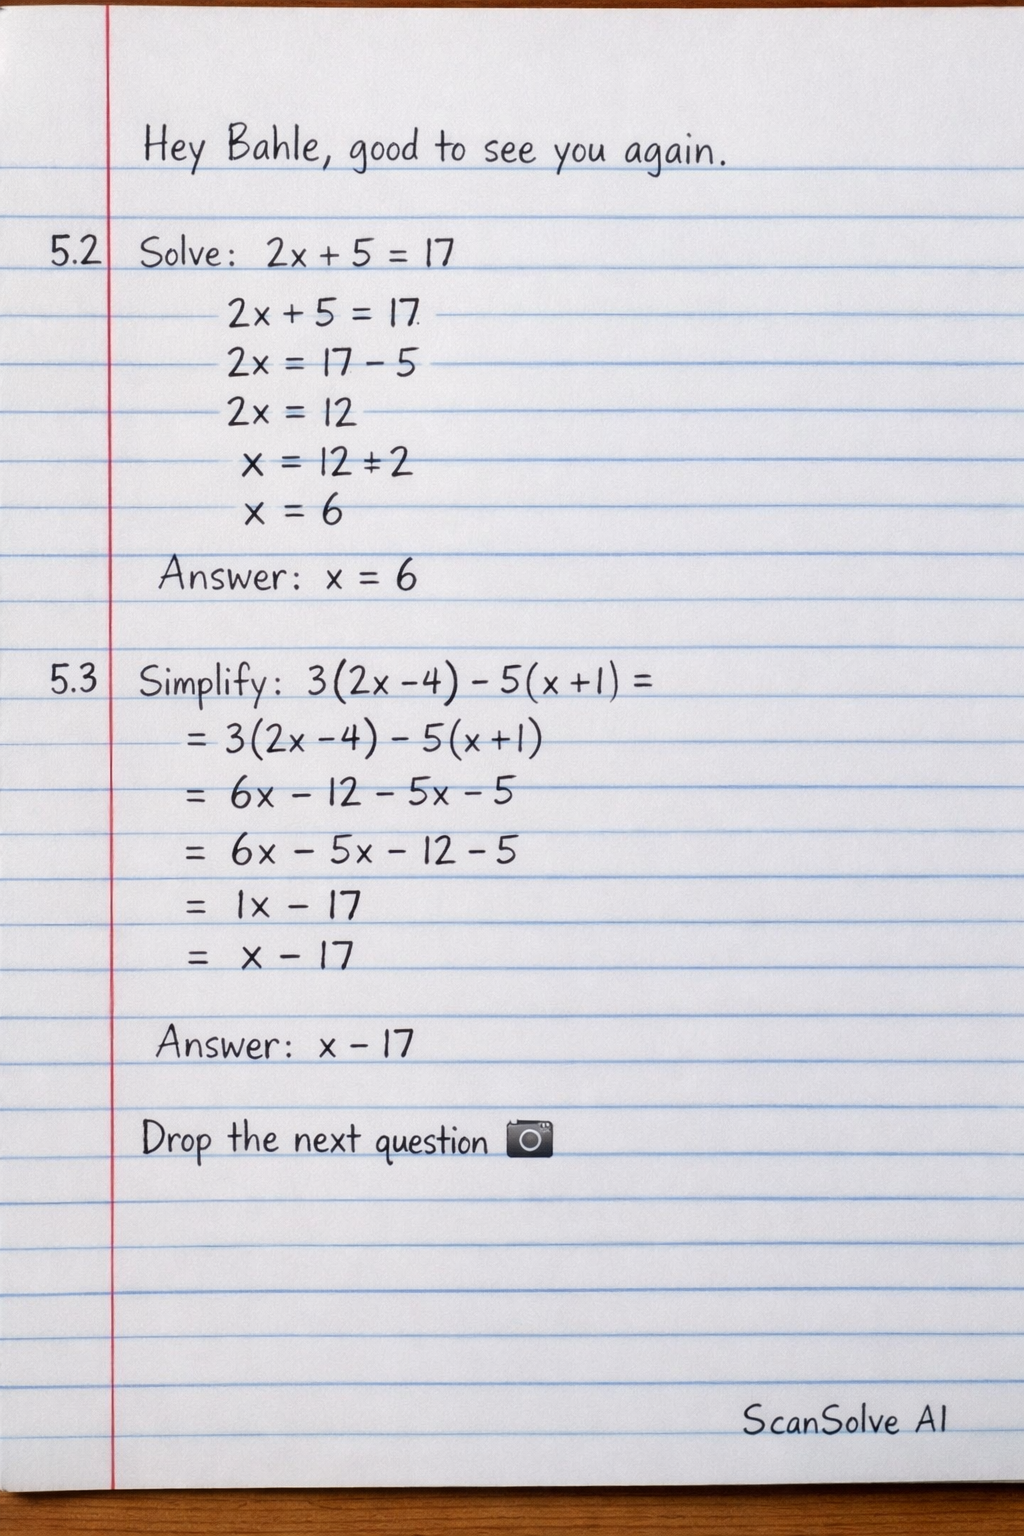 Hey Bahle, good to see you again.
5.2 Solve: 2x + 5 = 17
2x + 5 = 17
2x = 17 - 5
2x = 12
x = 12 ÷ 2
x = 6
Answer: x = 6
5.3 Simplify: 3(2x - 4) - 5(x + 1) =
= 3(2x - 4) - 5(x + 1)
= 6x - 12 - 5x - 5
= 6x - 5x - 12 - 5
= 1x - 17
= x - 17
Answer: x - 17
Drop the next question 📷
ScanSolve AI